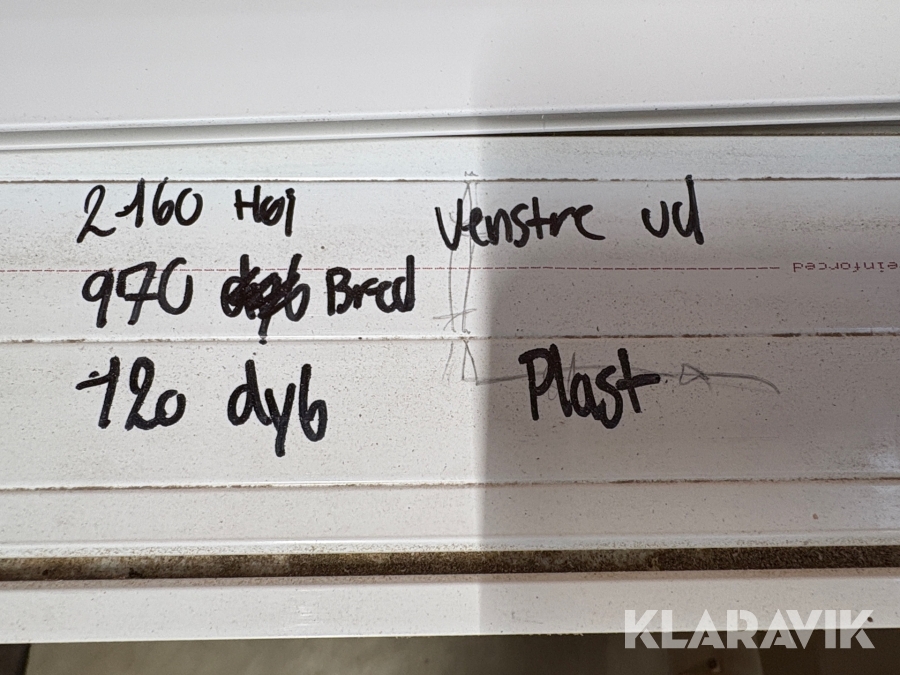 2160 Høj Venstre ud
970 Bred
120 dyb Plast
einforced
KLARAVIK